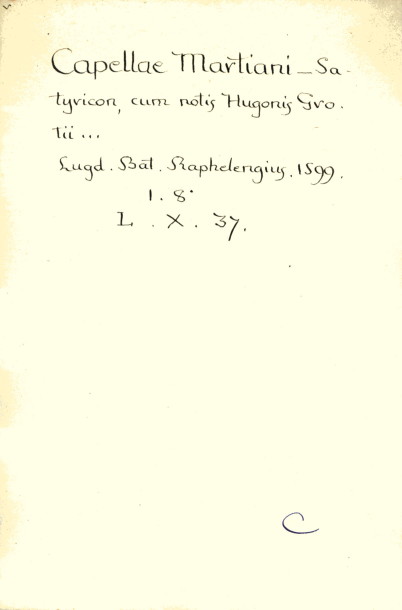 Capellae Martiani _ Sa-
tyricon, cum notis Hugonis Gro.
tii ...
Lugd. Bāt. Raphelengius. 1599.
1. 8°
L . X . 37.
C